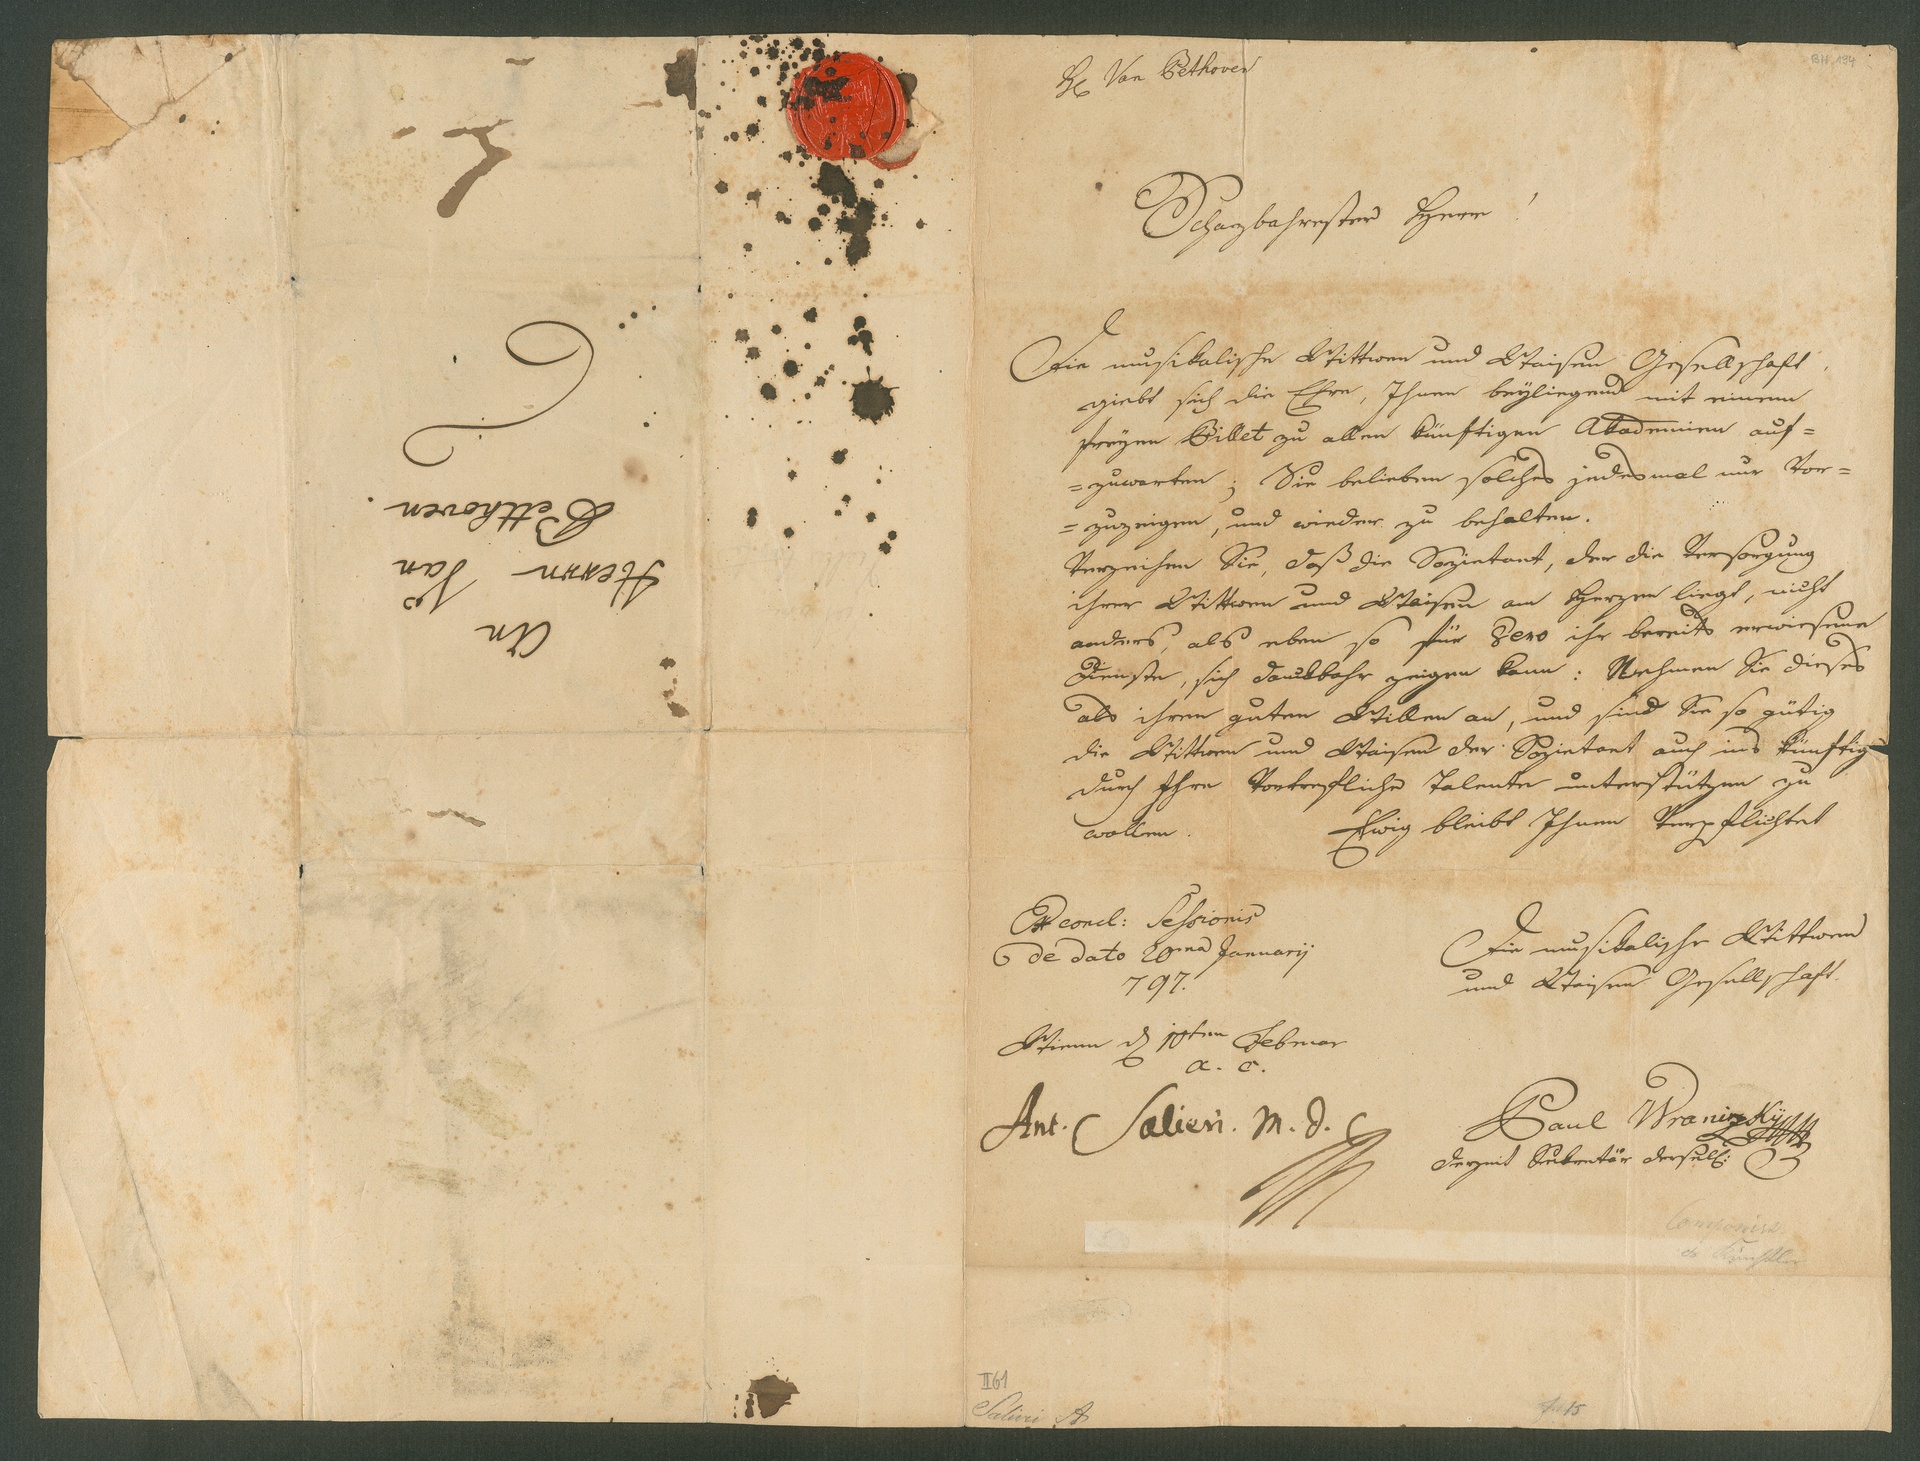 An
Herrn Van
Betthoven.
H: Van Bethoven
BH, 194
Schazbahrester Herr!
Die musikalische Wittwen und Waisen Gesellschaft,
giebt sich die Ehre, Ihnen beÿliegend mit einem
freÿen Billet zu allen künftigen Akademien auf=
=zuwarten; Sie belieben solches jedesmal nur Vor=
=zuzeigen, und wieder zu behalten.
Verzeihen Sie, daß die Sozietaet, der die Versorgung
ihrer Wittwen und Waisen am Herzen liegt, nicht
anders, als eben so für Dero ihr bereits erwiesene
Dienste, sich dankbahr zeigen kann: Nehmen Sie dieses
als ihren guten Willen an, und sind Sie so gütig
die Wittwen und Waisen der Sozietaet auch ins künftig
durch Ihre Vortrefliche Talente unterstützen zu
wollen. Ewig bleibt Ihnen Verpflichtet
Ex concl: Sessionis
de dato 20ma Januarij
797.
Die musikalische Wittwen
und Waisen Gesellschaft.
Wienn d 10ten Februar
a. c.
Ant. Salieri. M. d. C
Paul Wranizky
derzeit Sekretär derselb:
Componist
II 61
Salieri A